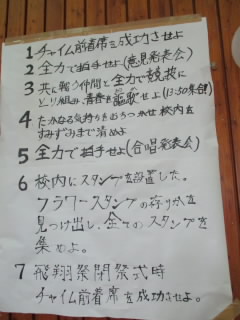 1 チャイム前着席を成功させよ
2 全力で拍手せよ(意見発表会)
3 共に競う仲間と全力で競技に
とり組み、青春を謳歌せよ(13:50集合)
4 たかなる気持ちをおちつかせ校内を
すみずみまで清めよ
5 全力で拍手せよ(合唱発表会)
6 校内にスタンプを設置した。
フラワースタンプのありかを
見つけ出し、全てのスタンプを
集めよ。
7 飛翔祭閉祭式時
チャイム前着席を成功させよ。